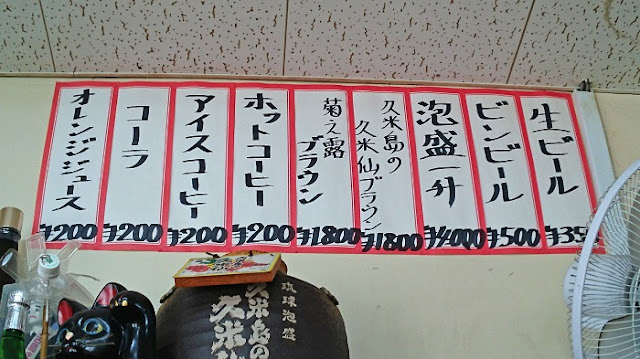 生ビール
¥350
ビンビール
¥500
泡盛一升
¥4000
久米島の
久米仙ブラウン
¥1800
菊之露
ブラウン
¥1800
ホットコーヒー
¥200
アイスコーヒー
¥200
コーラ
¥200
オレンジジュース
¥200
琉球泡盛
久米島の
久米